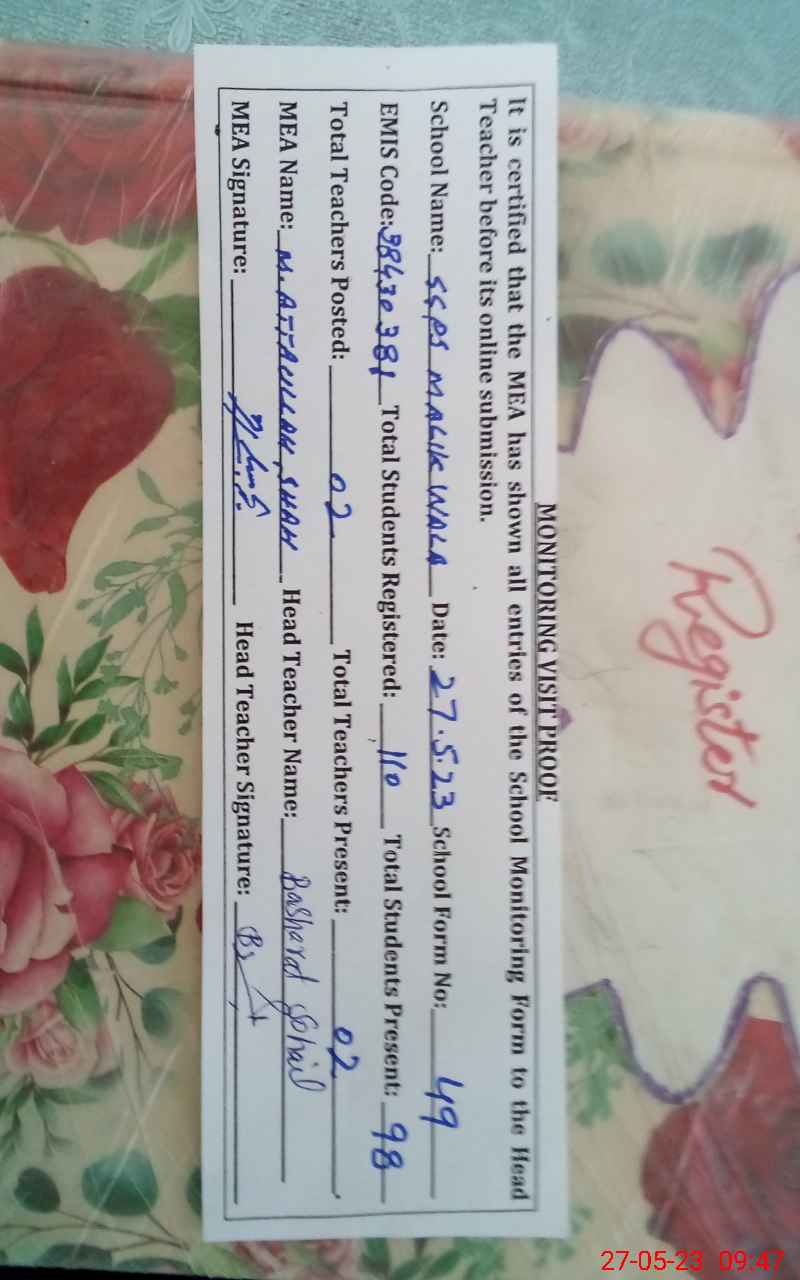 Register
MONITORING VISIT PROOF
It is certified that the MEA has shown all entries of the School Monitoring Form to the Head
Teacher before its online submission.
School Name: SSPS MALIK WALA Date: 27.5.23 School Form No: 49
EMIS Code: 38430381 Total Students Registered: 110 Total Students Present: 98
Total Teachers Posted: 02 Total Teachers Present: 02
MEA Name: M. ATTAULLAH SHAH Head Teacher Name: Basharat Sohail
MEA Signature: Head Teacher Signature:
27-05-23 09:47